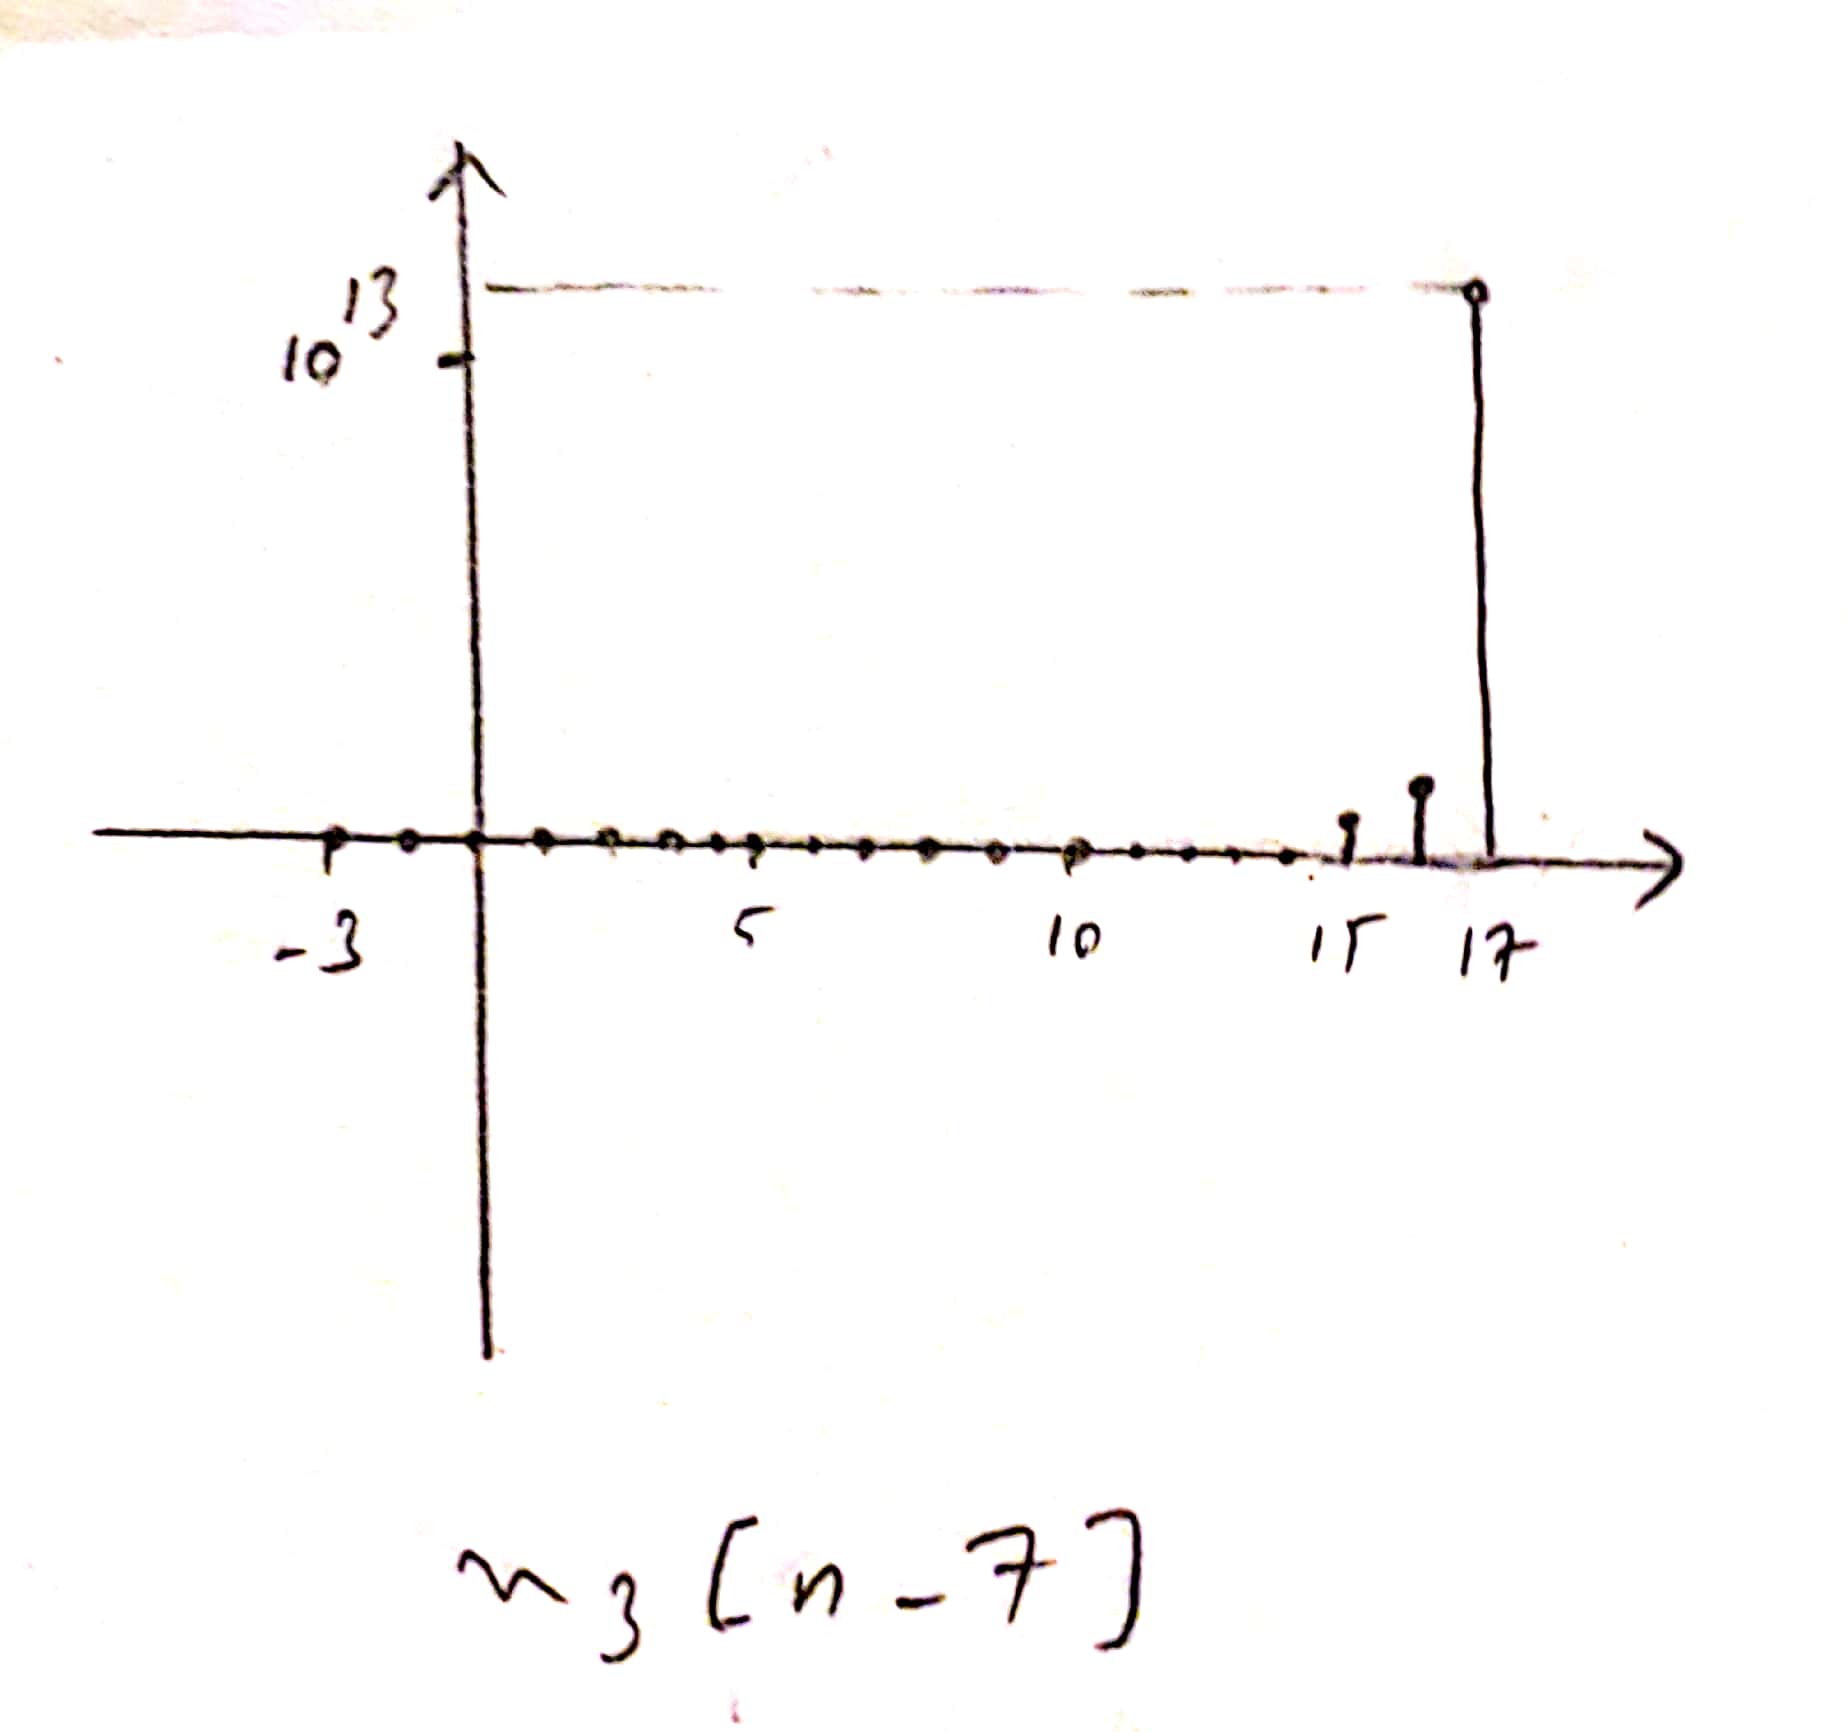 10^13
-3 5 10 15 17
x_3 [n-7]